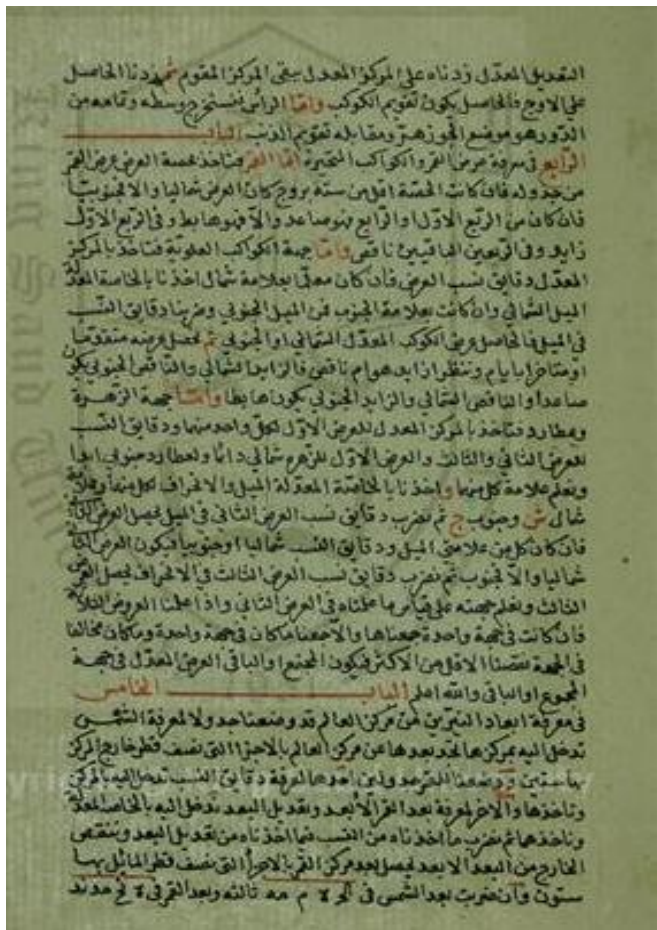 التعديل المعدل زدناه على المركز المعدل يبقى المركز المقوم ثم زدنا الحاصل
على الاوج فالحاصل يكون تقويم الكوكب واما الراس فنستخرج وسطه وتمامه من
الدور هو موضع الجوزهر ومقابله تقويم الذنب الباب
الرابع في معرفة عرض القمر والكواكب المتحيرة اما القمر فناخذ بحصة العرض عرض القمر
من جدوله فان كانت الحصة اقل من ستة بروج كان العرض شماليا والا فجنوبيا
فان كان من الربع الاول او الرابع فهو صاعد والا فهو هابط وفي الربع الاول
زايد وفي الربعين الباقيين ناقص واما جهة الكواكب العلوية فناخذ بالمركز
المعدل دقايق نسب العرض فان كان معلما بعلامة شمال اخذنا بالخاصة المعدلة
الميل الشمالي وان كانت بعلامة الجنوب فمن الميل الجنوبي وضربنا دقايق النسب
في الميل فالحاصل عرض الكوكب المعدل الشمالي او الجنوبي ثم نحصل عرضه متقدما
او متاخرا بايام وننظر ازايد هو ام ناقص فالزايد الشمالي والناقص الجنوبي يكون
صاعدا والناقص الشمالي والزايد الجنوبي يكون هابطا واما جهة الزهرة
وعطارد فناخذ بالمركز المعدل للعرض الاول لكل واحد منهما ودقايق النسب
للعرض الثاني والثالث والعرض الاول للزهره شمالي دائما ولعطارد جنوبي ابدا
ونعلم علامة كل منهما واخذنا بالخاصة المعدلة الميل والانحراف لكل منهما وعلامة
شمال ش وجنوب ج ثم نضرب دقايق نسب العرض الثاني في الميل يحصل العرض الثاني
فان كان كل من علامتي الميل ودقايق النسب شماليا او جنوبيا فيكون العرض الثاني
شماليا والا فجنوب ثم نضرب دقايق نسب العرض الثالث في الانحراف يحصل العرض
الثالث ونعلم جهته على قياس ما عملناه في العرض الثاني واذا علمنا العروض الثلاثة
فان كانت في جهة واحدة جمعناها والا جمعنا ما كان في جهة واحدة وما كان مخالفا
في الجهة نقصنا الاقل من الاكثر فيكون المجتمع او الباقي العرض المعدل في جهة
المجموع او الباقي والله اعلم الباب الخامس
في معرفة ابعاد النيرين من مركز العالم قد وضعنا جدولا لمعرفة الشمس
تدخل اليه بمركزها تجد بعدها عن مركز العالم بالاجزا التي نصف قطر خارج المركز
بها ستين ووضعنا للقمر جدولين احدهما لمعرفة دقايق النسب تدخل اليه بالمركز
وتاخذها والاخر لمعرفة بعد القمر الابعد وتعديل البعد تدخل اليه بالخاصة المعدلة
وتاخذهما ثم نضرب ما اخذناه من النسب فيما اخذناه من تعديل البعد وننقص
الخارج من البعد الابعد يحصل بعد مركز القمر بالاجزا التي نصف قطر المايل بها
ستون وان ضربت بعد الشمس في ثالثه وبعد القمر في